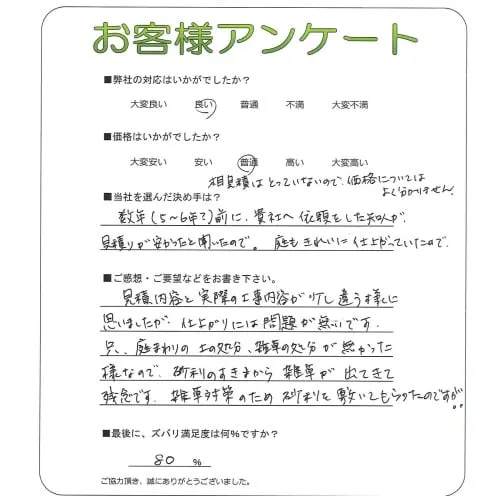 お客様アンケート
■弊社の対応はいかがでしたか？
大変良い 良い 普通 不満 大変不満
■価格はいかがでしたか？
大変安い 安い 普通 高い 大変高い
相見積はとっていないので、価格については
よく分かりません!
■当社を選んだ決め手は？
数年(5〜6年?)前に、貴社へ依頼をした知人が、
見積りが安かったと聞いたので。庭もきれいに仕上がっていたので。
■ご感想・ご要望などをお書き下さい。
見積内容と実際の工事内容が少し違う様に
思いましたが、仕上がりには問題が無いです。
只、庭まわりの土の処分、雑草の処分が無かった
様なので、砂利のすきまから雑草が出てきて
残念です。雑草対策のため砂利を敷いてもらったのですが!!
■最後に、ズバリ満足度は何%ですか？
80 %
ご協力頂き、誠にありがとうございました。